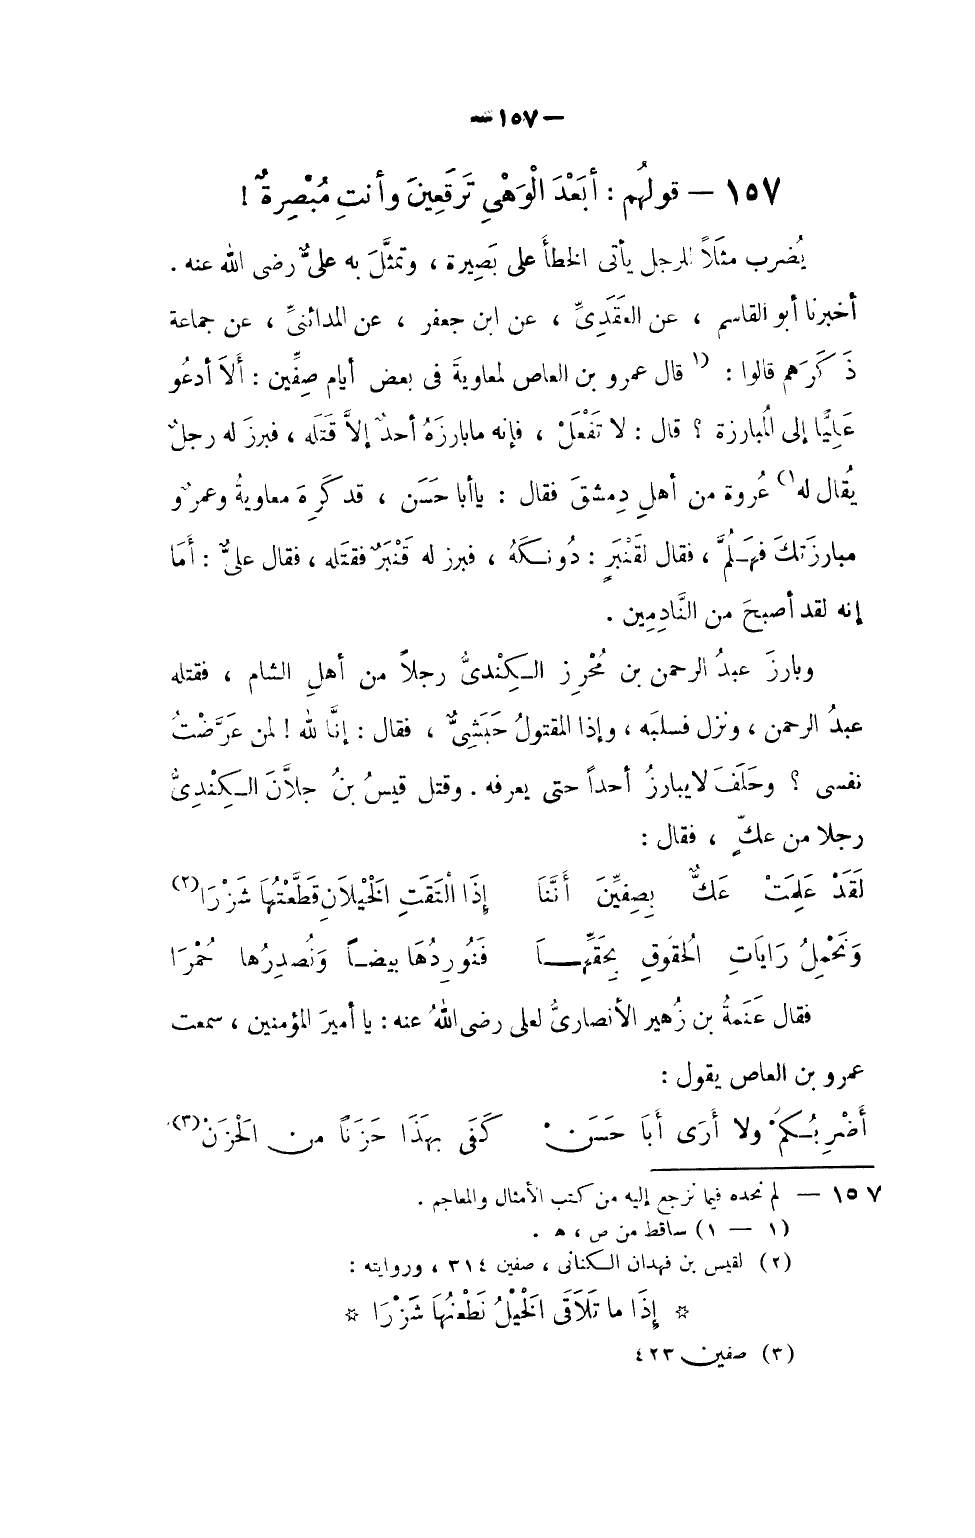 — ١٥٧ —
١٥٧ — قولهُم : أبَعْدَ الْوَهْىِ تَرقَعِينَ وأنتِ مُبْصِرةٌ !
يُضرب مثلاً للرجل يأتى الخطأَ على بَصِيرة ، وتمثَّلَ به علىٌّ رضى الله عنه .
أخبرنا أبو القاسم ، عن العقَدِىِّ ، عن ابن جعفر ، عن المدائنىِّ ، عن جماعة
ذَكَرَهم قالوا : (١ قال عمرو بن العاص لمعاويةَ فى بعض أيام صِفِّين : أَلاَ أدعُو
عَلِيًّا إلى المُبارزة ؟ قال : لا تَفْعَلْ ، فإنه مابارزَهُ أحدٌ إلاَّ قَتَله ، فبرزَ له رجلٌ
يُقال له ١) عُروة من أهلِ دِمشقَ فقال : ياأبا حَسَن ، قد كَرِهَ معاويةُ وعمرٌو
مبارزَتكَ فهَلُمَّ ، فقال لقَنْبَرٍ : دُونكَهُ ، فبرز له قَنْبَرٌ فقتَله ، فقال علىٌّ : أمَا
إنه لقد أصبحَ من النَّادِمِين .
وبارزَ عبدُ الرحمن بن مُحْرِز الكِنْدىُّ رجلاً من أهلِ الشام ، فقتله
عبدُ الرحمن ، ونزل فسلبَه ، وإذا المقتولُ حَبَشِىٌّ ، فقال : إنَّا لله ! لمن عَرَّضْتُ
نفسى ؟ وحَلَفَ لايبارزُ أحداً حتى يعرفه . وقتل قيسُ بنُ جلاَّنَ الكِنْدِىُّ
رجلا من عكٍّ ، فقال :
لَقَدْ عَلِمَتْ عَكٌّ بِصِفِّينَ أَنَّنَا إذَا الْتَقَتِ الْخَيْلاَنِ قَطَّعْتُهَا شَزْرَا(٢)
وَنَحْمِلُ رَايَاتِ الحُقوقِ بِحَقِّهَا فَنُورِدُهَا بيضاً ونُصدِرُها حُمْرَا
فقال عَنَمةُ بن زُهير الأنصارىُّ لعلى رضى اللهُ عنه : يا أميرَ المؤمنين ، سمعت
عمرو بن العاص يقول :
أَضْرِبُكمْ ولا أَرَى أَبَا حَسَنْ كَفَى بِهَذَا حَزَنًا من الْحَزَنْ(٣)
١٥٧ — لم نجده فيما نرجع إليه من كتب الأمثال والمعاجم .
(١ — ١) ساقط من ص ، ه .
(٢) لقيس بن فهدان الكنانى ، صفين ٣١٤ ، وروايته :
* إِذَا ما تَلَاقَى الْخَيْلُ نَطْعَنُهَا شَزْرَا *
(٣) صفين ٤٢٣